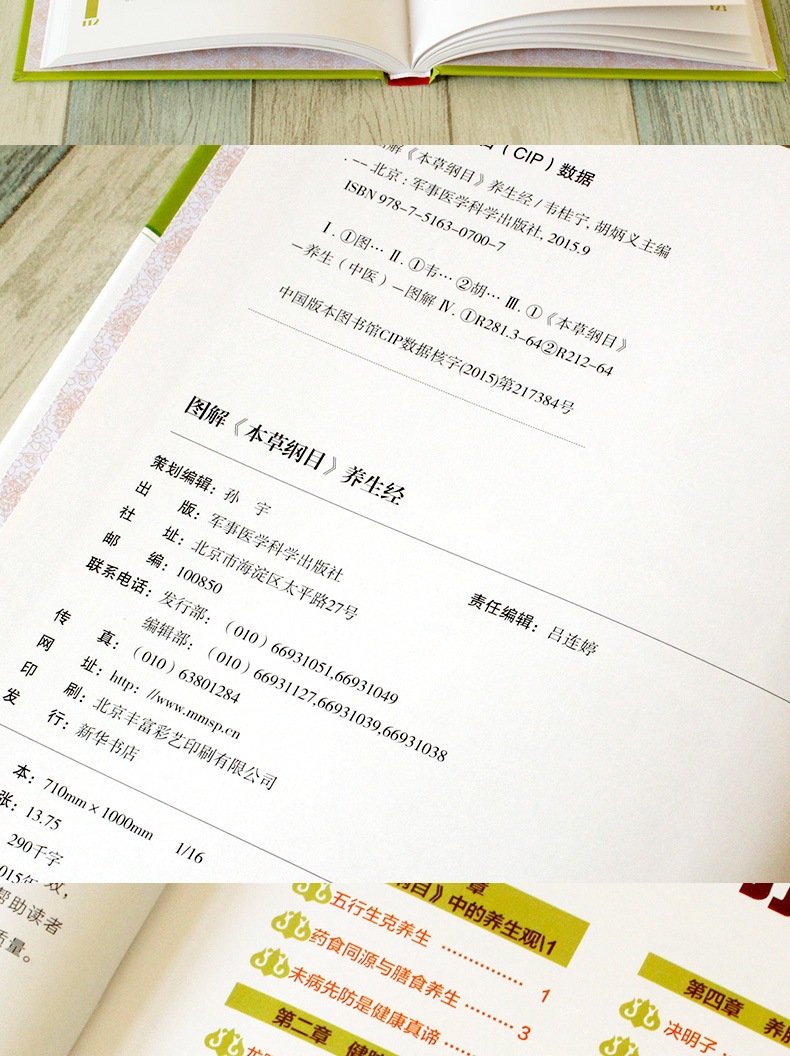 112
121
（CIP）数据
图解《本草纲目》养生经 / 韦桂宁, 胡炳义主编
. -- 北京 : 军事医学科学出版社, 2015.9
ISBN 978-7-5163-0700-7
Ⅰ. ①图… Ⅱ. ①韦… ②胡… Ⅲ. ①《本草纲目》
－养生（中医）－图解 Ⅳ. ①R281.3-64②R212-64
中国版本图书馆CIP数据核字(2015)第217384号
图解《本草纲目》养生经
策划编辑：孙　宇
责任编辑：吕连婷
出　版：军事医学科学出版社
社　址：北京市海淀区太平路27号
邮　编：100850
联系电话：发行部：（010）66931051,66931049
编辑部：（010）66931127,66931039,66931038
传　真：（010）63801284
网　址：http：//www.mmsp.cn
印　刷：北京丰富彩艺印刷有限公司
发　行：新华书店
本：710mm×1000mm　1/16
张：13.75
290千字
帮助读者
质量。
章
纲目》中的养生观\1
五行生克养生 ……………… 1
药食同源与膳食养生 ……… 3
未病先防是健康真谛
第二章
第四章
决明子